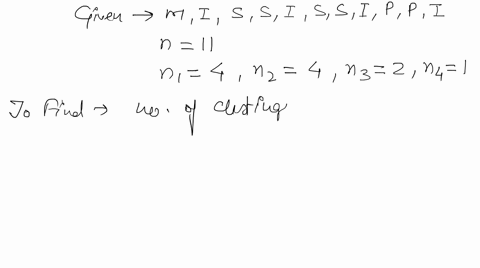 Given → M, I, S, S, I, S, S, I, P, P, I
n = 11
n₁ = 4, n₂ = 4, n₃ = 2, n₄ = 1
To Find → no. of